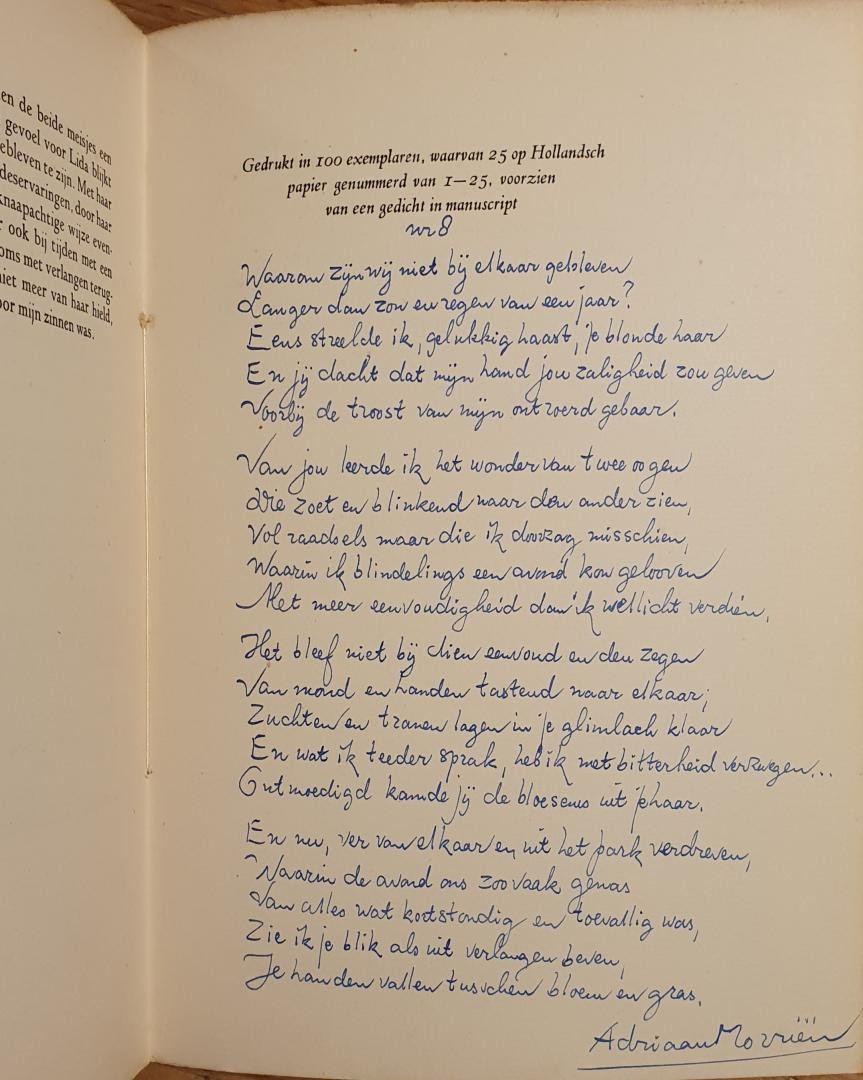 en de beide meisjes een
gevoel voor Lida blijkt
ebleven te zijn. Met haar
deservaringen, door haar
knaapachtige wijze even-
r ook bij tijden met een
oms met verlangen terug-
niet meer van haar hield,
oor mijn zinnen was.
Gedrukt in 100 exemplaren, waarvan 25 op Hollandsch
papier genummerd van 1—25, voorzien
van een gedicht in manuscript
nr 8
Waarom zijn wij niet bij elkaar gebleven
Langer dan zon en regen van een jaar?
Eens streelde ik, gelukkig haast, je blonde haar
En jij dacht dat mijn hand jou zaligheid zou geven
Voorbij de troost van mijn ontroerd gebaar.
Van jou leerde ik het wonder van twee oogen
Die zoet en blinkend naar den ander zien,
Vol raadsels maar die ik doorzag misschien,
Waarin ik blindelings een avond kon gelooven
Met meer eenvoudigheid dan 'k wellicht verdien.
Het bleef niet bij dien eenvoud en den zegen
Van mond en handen tastend naar elkaar;
Zuchten en tranen lagen in je glimlach klaar
En wat ik teeder sprak, heb ik met bitterheid verzwegen...
Ontmoedigd kamde jij de bloesems uit je haar.
En nu, ver van elkaar en uit het park verdreven,
Waarin de avond ons zoo vaak genas
Van alles wat kortstondig en toevallig was,
Zie ik je blik als uit verlangen beven,
Je handen vallen tusschen bloem en gras.
Adriaan Morriën